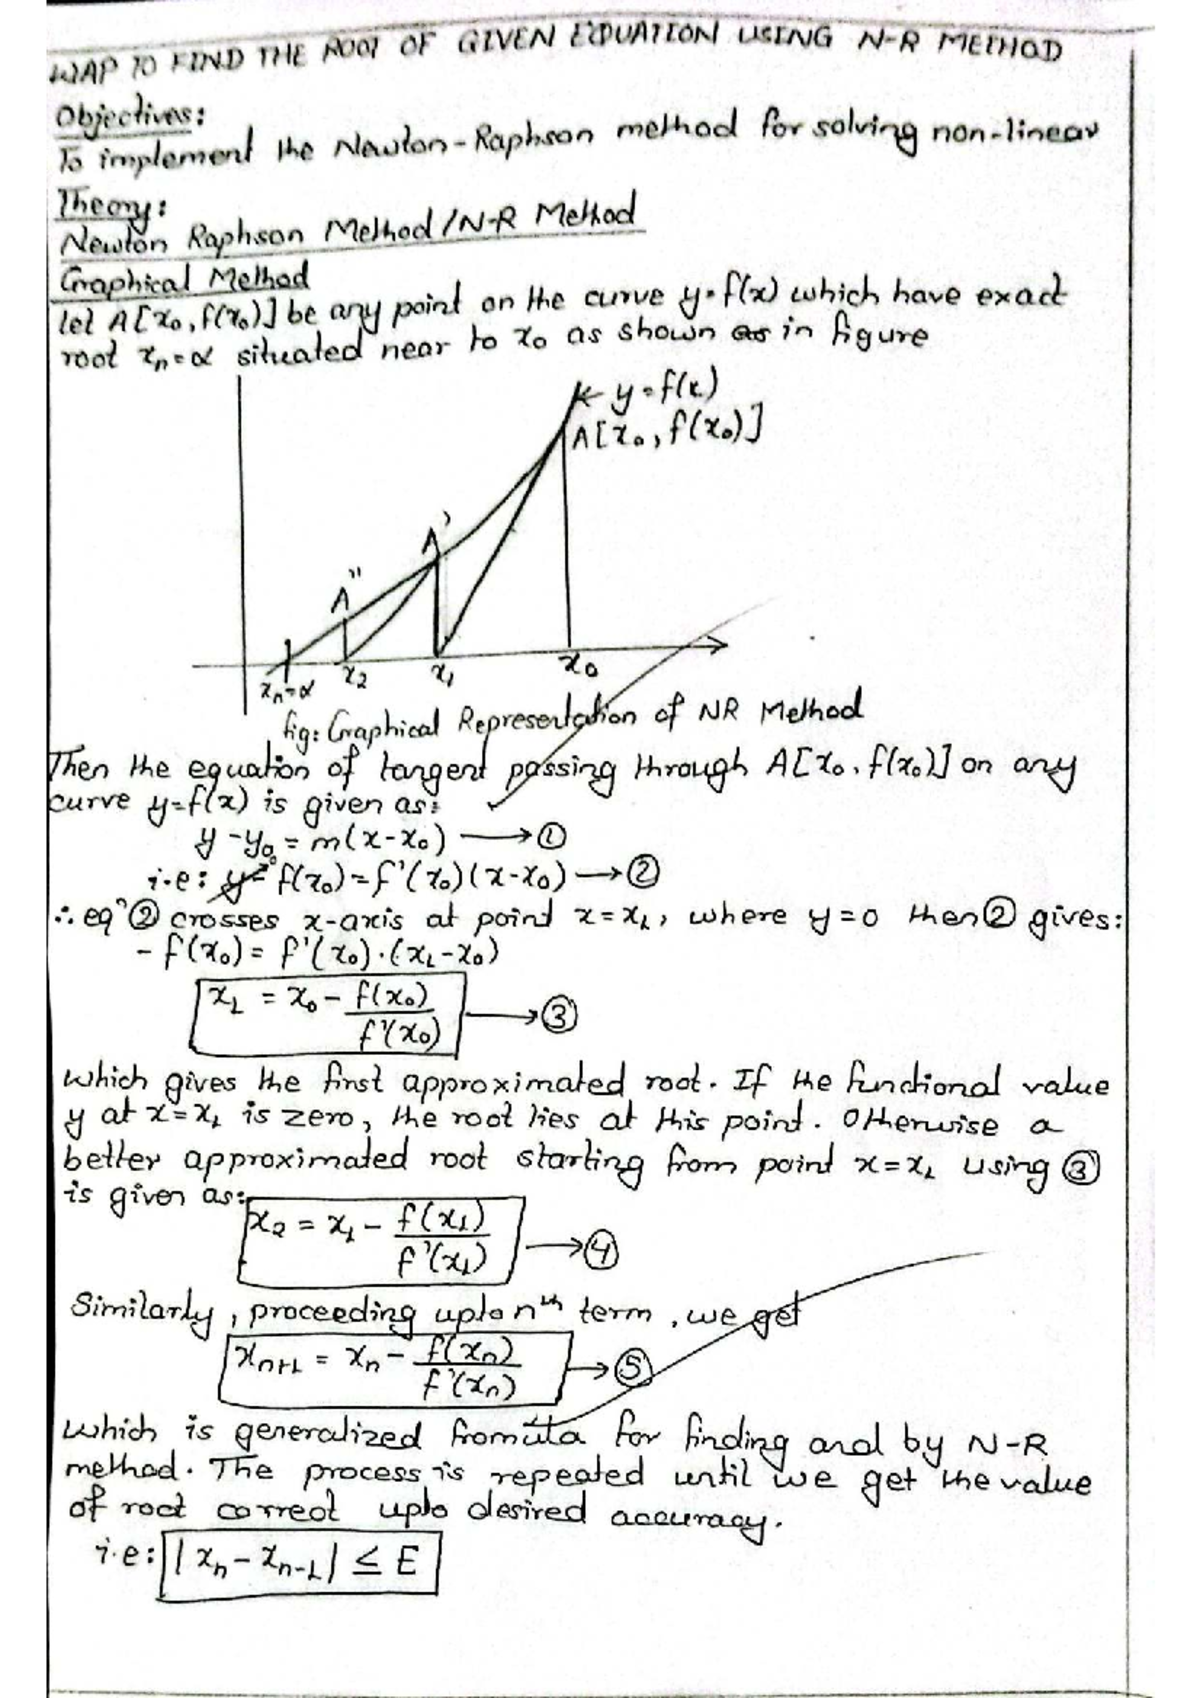 WAP TO FIND THE ROOT OF GIVEN EQUATION USING N-R METHOD
Objectives:
To implement the Newton-Raphson method for solving non-linear
Theory:
Newton Raphson Method/N-R Method
Graphical Method
let A[x₀, f(x₀)] be any point on the curve y=f(x) which have exact
root xₙ=α situated near to x₀ as shown as in figure
y=f(x)
A[x₀, f(x₀)]
A'
A"
xₙ=α x₂ x₁ x₀
fig: Graphical Representation of NR Method
Then the equation of tangent passing through A[x₀, f(x₀)] on any
curve y=f(x) is given as:
y-y₀ = m(x-x₀) → ①
i.e: y- f(x₀)=f'(x₀)(x-x₀) → ②
∴ eqⁿ ② crosses x-axis at point x=x₁, where y=0 then ② gives:
- f(x₀) = f'(x₀)·(x₁-x₀)
x₁ = x₀ - f(x₀)/f'(x₀) → ③
which gives the first approximated root. If the functional value
y at x=x₁ is zero, the root lies at this point. Otherwise a
better approximated root starting from point x=x₁ using ③
is given as:
x₂ = x₁ - f(x₁)/f'(x₁) → ④
Similarly, proceeding upto nᵗʰ term, we get
xₙ₊₁ = xₙ - f(xₙ)/f'(xₙ) → ⑤
which is generalized fromula for finding and by N-R
method. The process is repeated until we get the value
of root correct upto desired accuracy.
i.e: |xₙ - xₙ₋₁| ≤ E